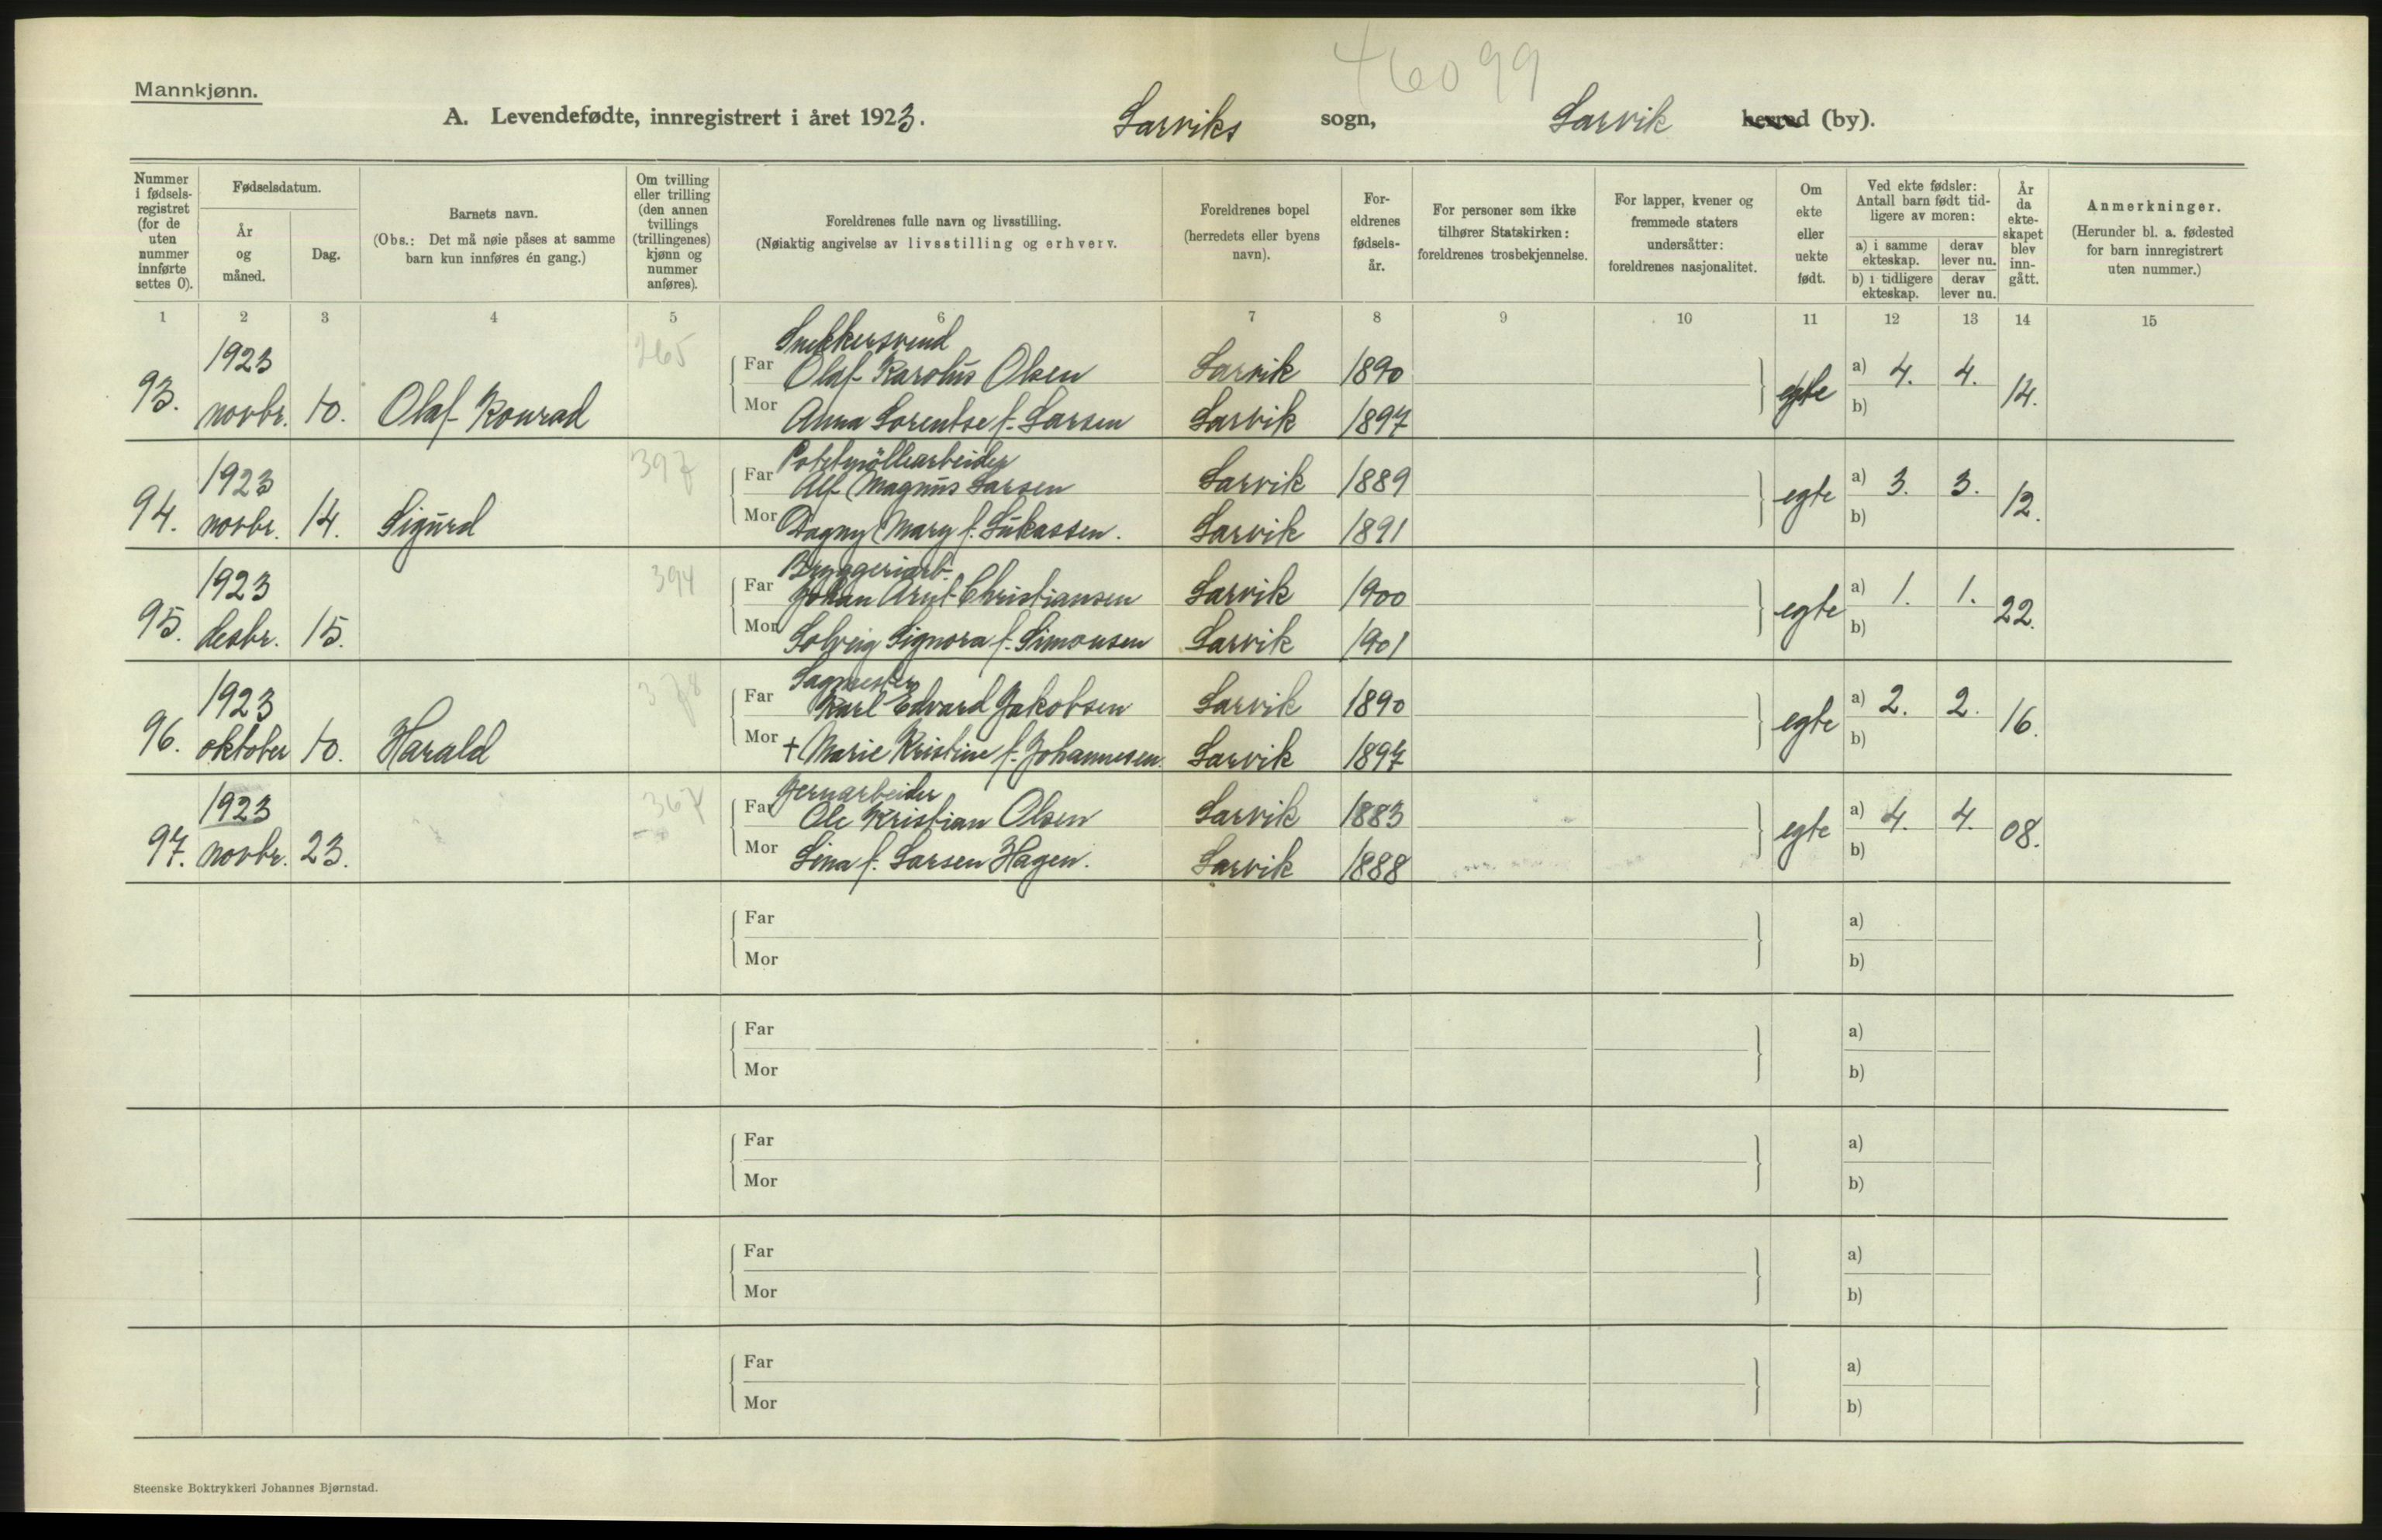 46099
Mannkjønn.
A. Levendefødte, innregistrert i året 1923. Larviks sogn, Larvik herred (by).
Nummer i fødselsregistret (for de uten nummer innførte settes 0).
Fødselsdatum.
År og måned.
Dag.
Barnets navn.
(Obs.: Det må nøie påses at samme barn kun innføres én gang.)
Om tvilling eller trilling (den annen tvillings (trillingenes) kjønn og nummer anføres).
Foreldrenes fulle navn og livsstilling.
(Nøiaktig angivelse av livsstilling og erhverv.
Foreldrenes bopel (herredets eller byens navn).
Foreldrenes fødselsår.
For personer som ikke tilhører Statskirken: foreldrenes trosbekjennelse.
For lapper, kvener og fremmede staters undersåtter: foreldrenes nasjonalitet.
Om ekte eller uekte født.
Ved ekte fødsler: Antall barn født tidligere av moren:
a) i samme ekteskap. derav lever nu.
b) i tidligere ekteskap. derav lever nu.
År da ekteskapet blev inngått.
Anmerkninger.
(Herunder bl. a. fødested for barn innregistrert uten nummer.)
1 2 3 4 5 6 7 8 9 10 11 12 13 14 15
Snekkersvend
1923 265 Far Olaf Karolus Olsen Larvik 1890 a) 4. 4.
93. novbr. 10. Olaf Konrad Mor Anna Lorentse f. Larsen Larvik 1897 egte b) 14.
Potetmöllearbeider
1923 397 Far Alf Magnus Larsen Larvik 1889 a) 3. 3.
94. novbr. 14. Sigurd Mor Dagny Mary f. Lukassen. Larvik 1891 egte b) 12.
Bryggeriarb.
1923 394 Far Johan Arnt Christiansen Larvik 1900 a) 1. 1.
95. desbr. 15. Mor Solveig Signora f. Simonsen Larvik 1901 egte b) 22.
Sagmester
1923 378 Far Karl Edvard Jakobsen Larvik 1890 a) 2. 2.
96. oktober 10. Harald Mor + Marie Kristine f. Johannesen. Larvik 1897 egte b) 16.
Jernarbeider
1923 367 Far Ole Kristian Olsen Larvik 1883 a) 4. 4.
97. novbr. 23. Mor Lina f. Larsen Hagen. Larvik 1888 egte b) 08.
Far a)
Mor b)
Far a)
Mor b)
Far a)
Mor b)
Far a)
Mor b)
Far a)
Mor b)
Steenske Boktrykkeri Johannes Bjørnstad.